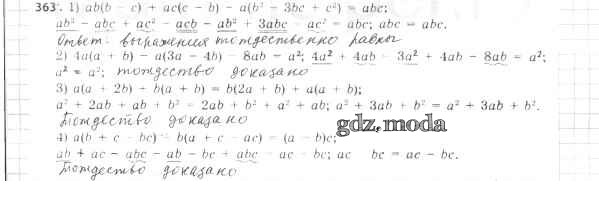 363. 1) ab(b - c) + ac(c - b) - a(b² - 3bc + c²) = abc;
ab² - abc + ac² - acb - ab² + 3abc - ac² = abc; abc = abc.
Ответ: выражения тождественно равны
2) 4a(a + b) - a(3a - 4b) - 8ab = a²; 4a² + 4ab - 3a² + 4ab - 8ab = a²;
a² = a²; тождество доказано
3) a(a + 2b) + b(a + b) = b(2a + b) + a(a + b);
a² + 2ab + ab + b² = 2ab + b² + a² + ab; a² + 3ab + b² = a² + 3ab + b².
Тождество доказано
gdz.moda
4) a(b + c - bc) - b(a + c - ac) = (a - b)c;
ab + ac - abc - ab - bc + abc = ac - bc; ac bc = ac - bc.
Тождество доказано